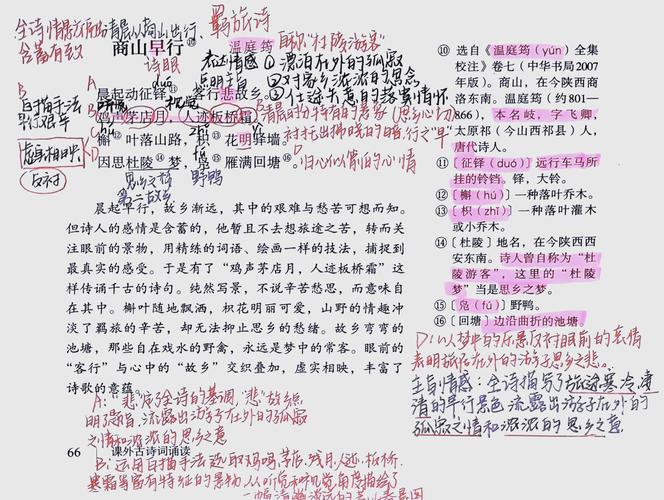 羁旅诗
全诗情景
含蓄有致
商山早行⑩
温庭筠
自称"杜陵游客"
诗眼
表达情感①漂泊在外的孤寂
点明主旨②对家乡浓浓的思念
③仕途失意的落寞情怀
晨起动征铎⑪,客行悲故乡。
白描手法
视觉
鸡声茅店月,人迹板桥霜。
虚实相映
zhǐ
槲⑫叶落山路,枳⑬花明驿墙。
(反衬)
因思杜陵⑭梦,凫⑮雁满回塘⑯。
思乡之情
野鸭
第二故乡
晨起早行,故乡渐远,其中的艰难与愁苦可想而知。
但诗人的感情是含蓄的,他暂且不去想旅途之苦,转而关
注眼前的景物,用精练的词语、绘画一样的技法,捕捉到
最真实的感受。于是有了"鸡声茅店月,人迹板桥霜"这
样传诵千古的诗句。纯然写景,不说辛苦愁思,而意味自
在其中。槲叶随地飘洒,枳花明丽可爱,山野的情趣冲
淡了羁旅的辛苦,却无法抑止思乡的愁绪。故乡弯弯的
池塘,那些自在戏水的野禽,永远是梦中的常客。眼前的
"客行"与心中的"故乡"交织叠加,虚实相映,丰富了
诗歌的意蕴。
A:"悲"定了全诗的基调,"悲"故乡,
明强指,流露出游子在外的孤寂
之情和浓浓的思乡之意
66 课外古诗词诵读
B:运用白描手法选取鸡鸣、茅店、残月、人迹、板桥、
寒霜等富有特征的景物,从听觉和视觉角度描绘了
⑩ 选自《温庭筠(yún)全集
校注》卷七(中华书局2007
年版)。商山,在今陕西商
洛东南。温庭筠(约801—
866),本名岐,字飞卿,
太原祁(今山西祁县)人,
唐代诗人。
⑪〔征铎(duó)〕远行车马所
挂的铃铛。铎,大铃。
⑫〔槲(hú)〕一种落叶乔木。
⑬〔枳(zhǐ)〕一种落叶灌木
或小乔木。
⑭〔杜陵〕地名,在今陕西西
安东南。诗人曾自称为"杜
陵游客",这里的"杜陵
梦"当是思乡之梦。
⑮〔凫(fú)〕野鸭。
⑯〔回塘〕边沿曲折的池塘。
D:以梦中的乐景反衬眼前的哀情
表明旅居在外的游子思乡之悲。
主旨情感:全诗描写了旅途寒冷凄
清的早行景色,流露出游子在外的
孤寂之情和浓浓的思乡之意